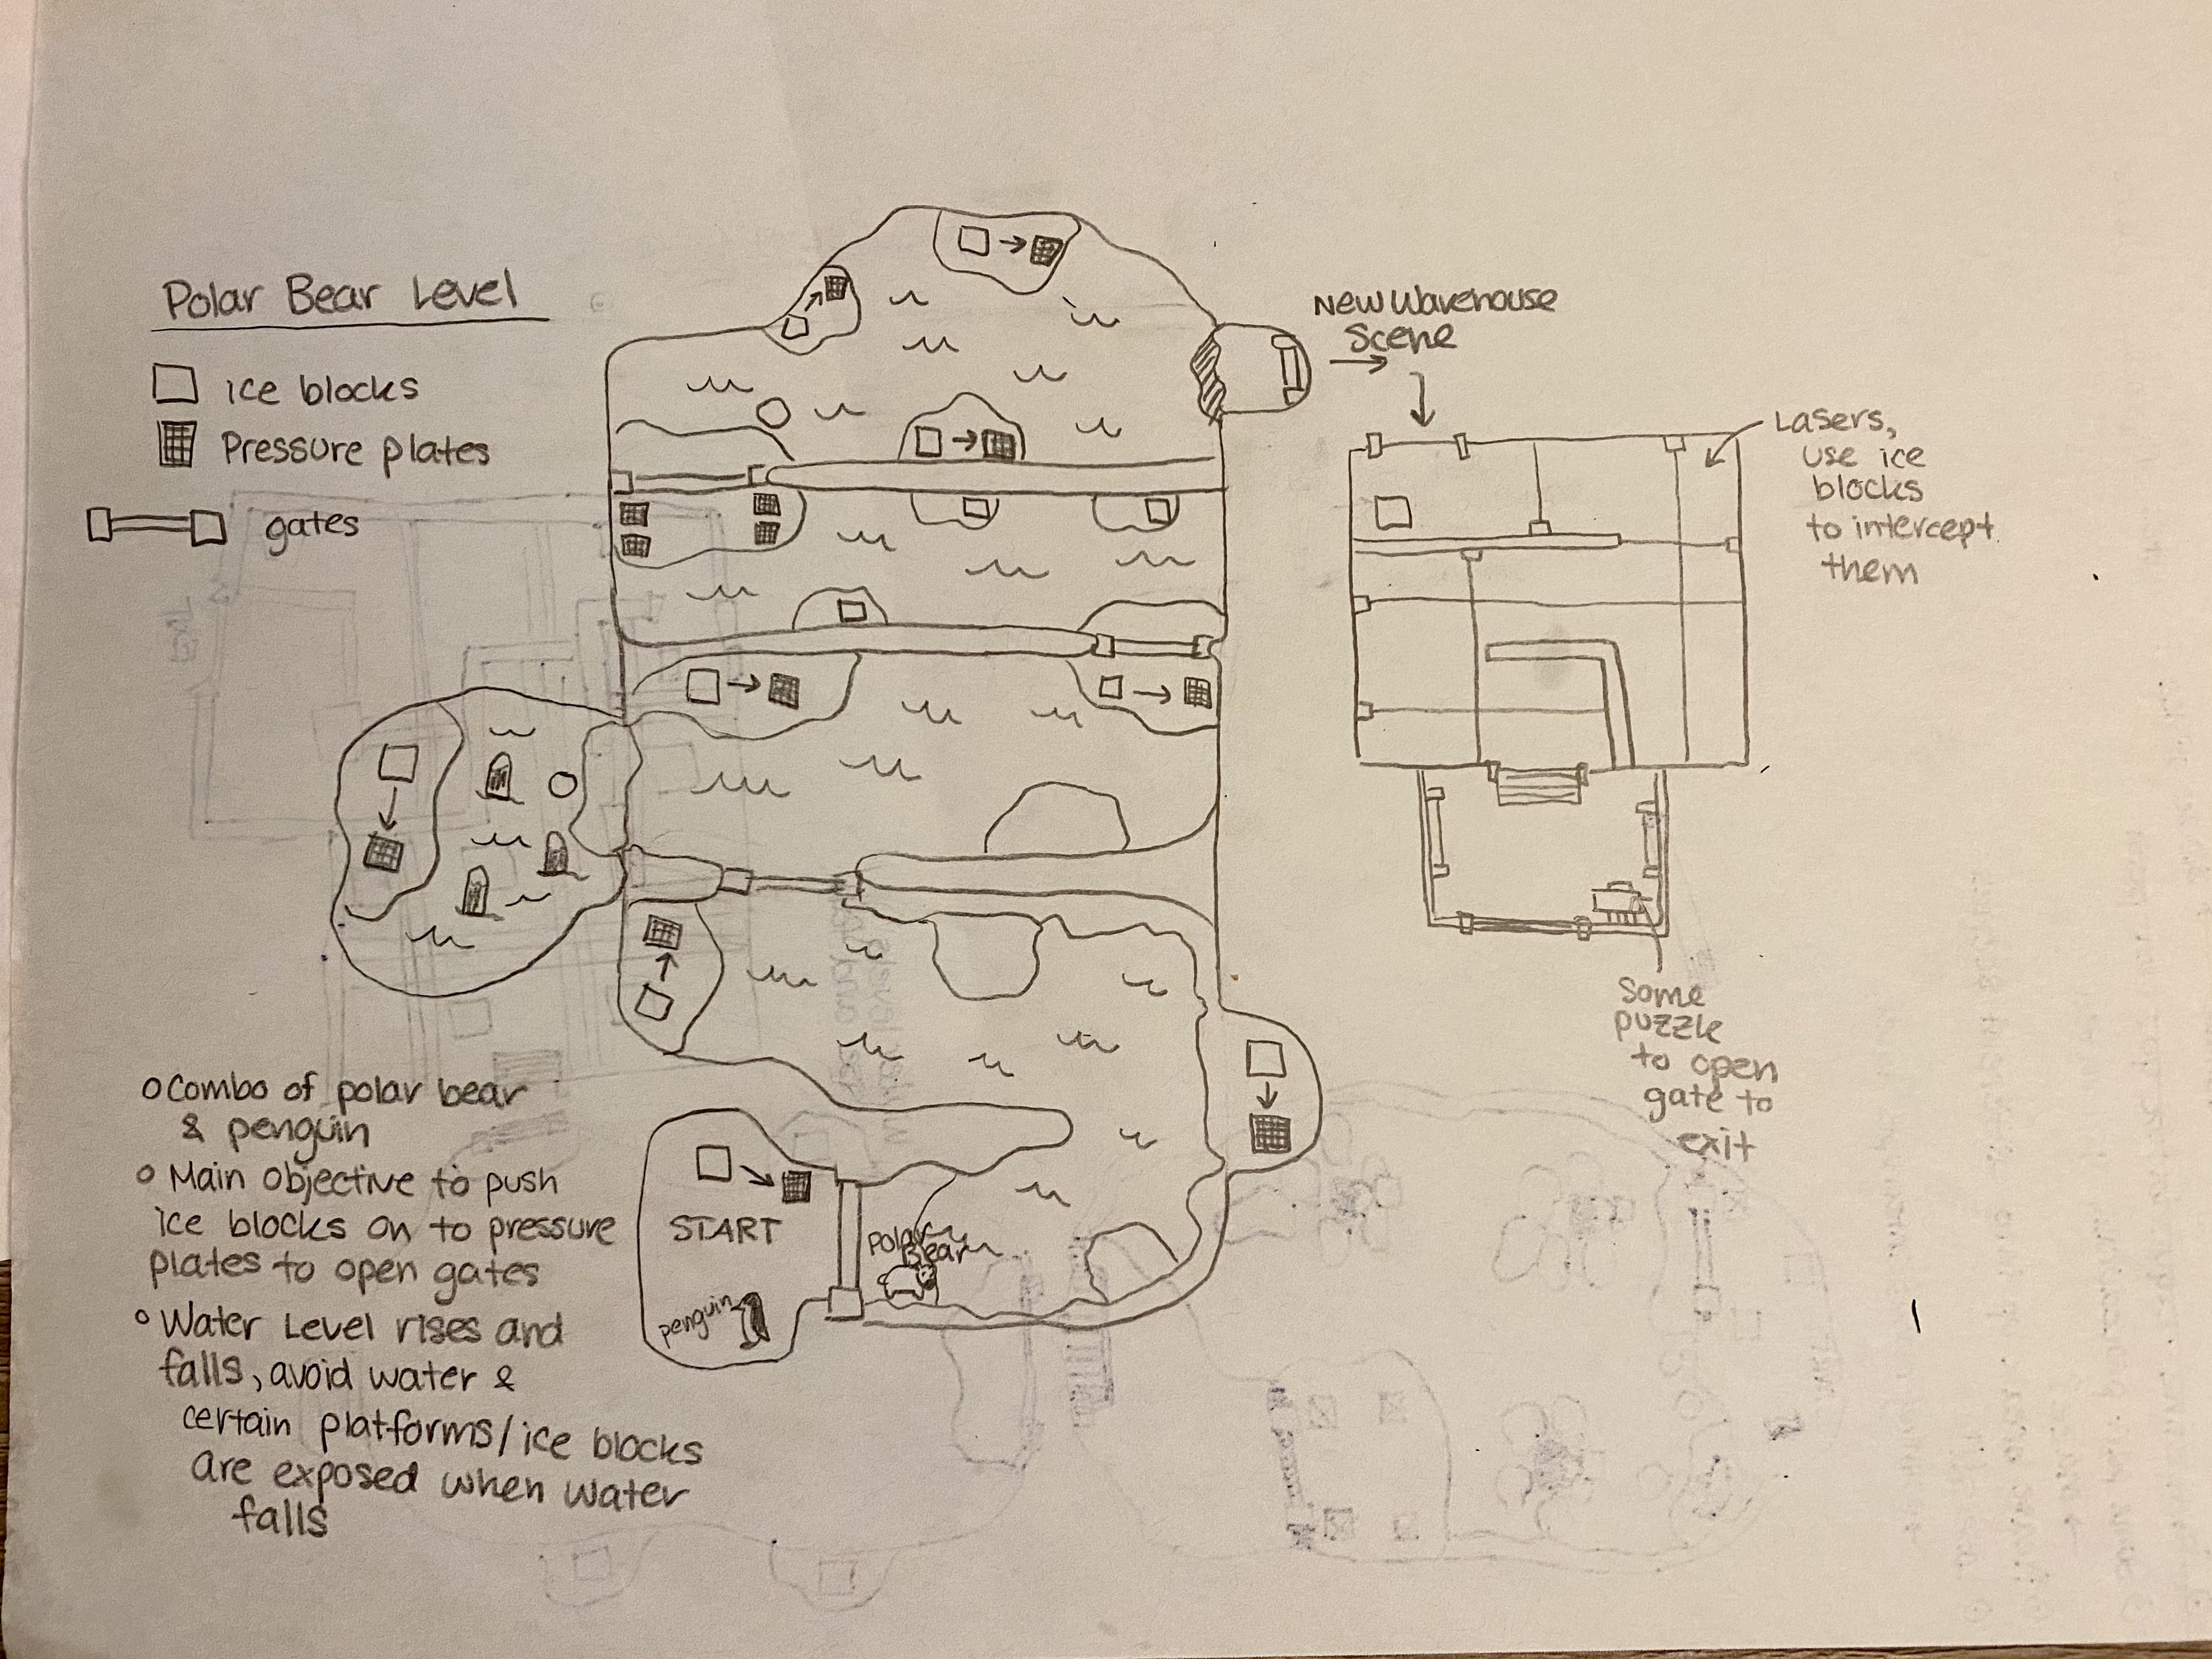 Polar Bear Level
ice blocks
Pressure plates
gates
New Warehouse
Scene
Lasers,
use ice
blocks
to intercept
them
Some
puzzle
to open
gate to
exit
START
penguin
Polar
Bear
Combo of polar bear
& penguin
Main objective to push
ice blocks on to pressure
plates to open gates
Water Level rises and
falls, avoid water &
certain platforms/ice blocks
are exposed when water
falls